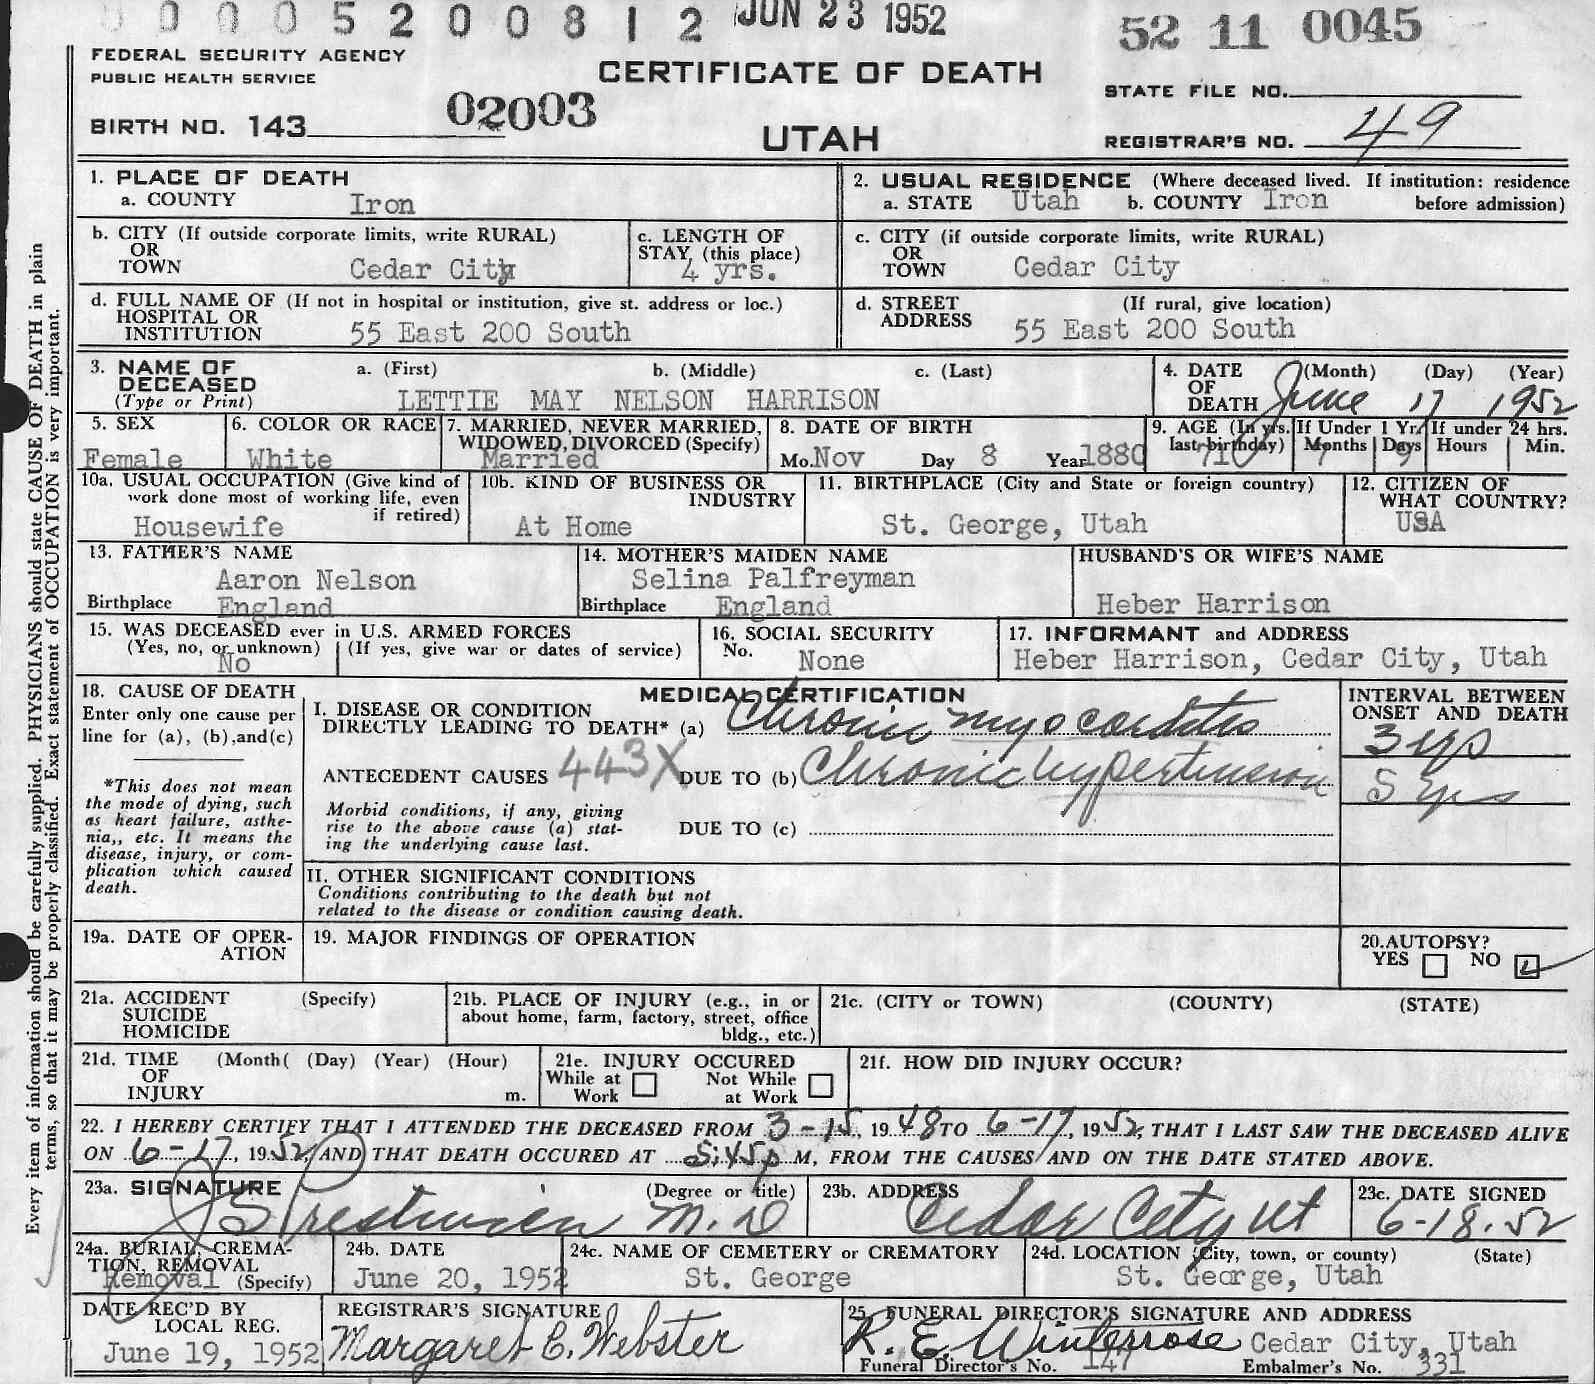 0 0 0 5 2 0 0 8 1 2 JUN 23 1952
52 11 0045
FEDERAL SECURITY AGENCY
PUBLIC HEALTH SERVICE
CERTIFICATE OF DEATH
STATE FILE NO.
BIRTH NO. 143 02003
UTAH
REGISTRAR'S NO. 49
1. PLACE OF DEATH
a. COUNTY Iron
2. USUAL RESIDENCE (Where deceased lived. If institution: residence
a. STATE Utah b. COUNTY Iron before admission)
b. CITY (If outside corporate limits, write RURAL)
OR
TOWN Cedar City
c. LENGTH OF
STAY (this place)
4 yrs.
c. CITY (if outside corporate limits, write RURAL)
OR
TOWN Cedar City
d. FULL NAME OF (If not in hospital or institution, give st. address or loc.)
HOSPITAL OR
INSTITUTION 55 East 200 South
d. STREET (If rural, give location)
ADDRESS 55 East 200 South
3. NAME OF a. (First) b. (Middle) c. (Last)
DECEASED
(Type or Print) LETTIE MAY NELSON HARRISON
4. DATE (Month) (Day) (Year)
OF
DEATH June 17 1952
5. SEX
Female
6. COLOR OR RACE
White
7. MARRIED, NEVER MARRIED,
WIDOWED, DIVORCED (Specify)
Married
8. DATE OF BIRTH
Mo. Nov Day 8 Year 1880
9. AGE (In yrs.
last birthday) 71
If Under 1 Yr.
Months 7 Days 9
If under 24 hrs.
Hours Min.
10a. USUAL OCCUPATION (Give kind of
work done most of working life, even
if retired)
Housewife
10b. KIND OF BUSINESS OR
INDUSTRY
At Home
11. BIRTHPLACE (City and State or foreign country)
St. George, Utah
12. CITIZEN OF
WHAT COUNTRY?
USA
13. FATHER'S NAME
Aaron Nelson
Birthplace England
14. MOTHER'S MAIDEN NAME
Selina Palfreyman
Birthplace England
HUSBAND'S OR WIFE'S NAME
Heber Harrison
15. WAS DECEASED ever in U.S. ARMED FORCES
(Yes, no, or unknown) (If yes, give war or dates of service)
No
16. SOCIAL SECURITY
No. None
17. INFORMANT and ADDRESS
Heber Harrison, Cedar City, Utah
18. CAUSE OF DEATH
Enter only one cause per
line for (a), (b), and(c)
*This does not mean
the mode of dying, such
as heart failure, asthe-
nia,, etc. It means the
disease, injury, or com-
plication which caused
death.
MEDICAL CERTIFICATION
I. DISEASE OR CONDITION
DIRECTLY LEADING TO DEATH* (a) Chronic myocarditis
ANTECEDENT CAUSES 443X DUE TO (b) Chronic hypertension
Morbid conditions, if any, giving
rise to the above cause (a) stat-
ing the underlying cause last.
DUE TO (c)
INTERVAL BETWEEN
ONSET AND DEATH
3 yrs
5 yrs
II. OTHER SIGNIFICANT CONDITIONS
Conditions contributing to the death but not
related to the disease or condition causing death.
19a. DATE OF OPER-
ATION
19. MAJOR FINDINGS OF OPERATION
20. AUTOPSY?
YES NO
21a. ACCIDENT (Specify)
SUICIDE
HOMICIDE
21b. PLACE OF INJURY (e.g., in or
about home, farm, factory, street, office
bldg., etc.)
21c. (CITY or TOWN) (COUNTY) (STATE)
21d. TIME (Month( (Day) (Year) (Hour)
OF
INJURY m.
21e. INJURY OCCURED
While at Not While
Work at Work
21f. HOW DID INJURY OCCUR?
22. I HEREBY CERTIFY THAT I ATTENDED THE DECEASED FROM 3-15, 1948 TO 6-17, 1952, THAT I LAST SAW THE DECEASED ALIVE
ON 6-17, 1952 AND THAT DEATH OCCURED AT 5:45p M, FROM THE CAUSES AND ON THE DATE STATED ABOVE.
23a. SIGNATURE (Degree or title)
Prestwich M.D
23b. ADDRESS
Cedar City Ut
23c. DATE SIGNED
6-18-52
24a. BURIAL, CREMA-
TION, REMOVAL
Removal (Specify)
24b. DATE
June 20, 1952
24c. NAME OF CEMETERY or CREMATORY
St. George
24d. LOCATION (City, town, or county) (State)
St. George, Utah
DATE REC'D BY
LOCAL REG.
June 19, 1952
REGISTRAR'S SIGNATURE
Margaret C. Webster
25. FUNERAL DIRECTOR'S SIGNATURE AND ADDRESS
R. E. Winterrose Cedar City, Utah
Funeral Director's No. 147 Embalmer's No. 331
Every item of information should be carefully supplied. PHYSICIANS should state CAUSE OF DEATH in plain
terms, so that it may be properly classified. Exact statement of OCCUPATION is very important.